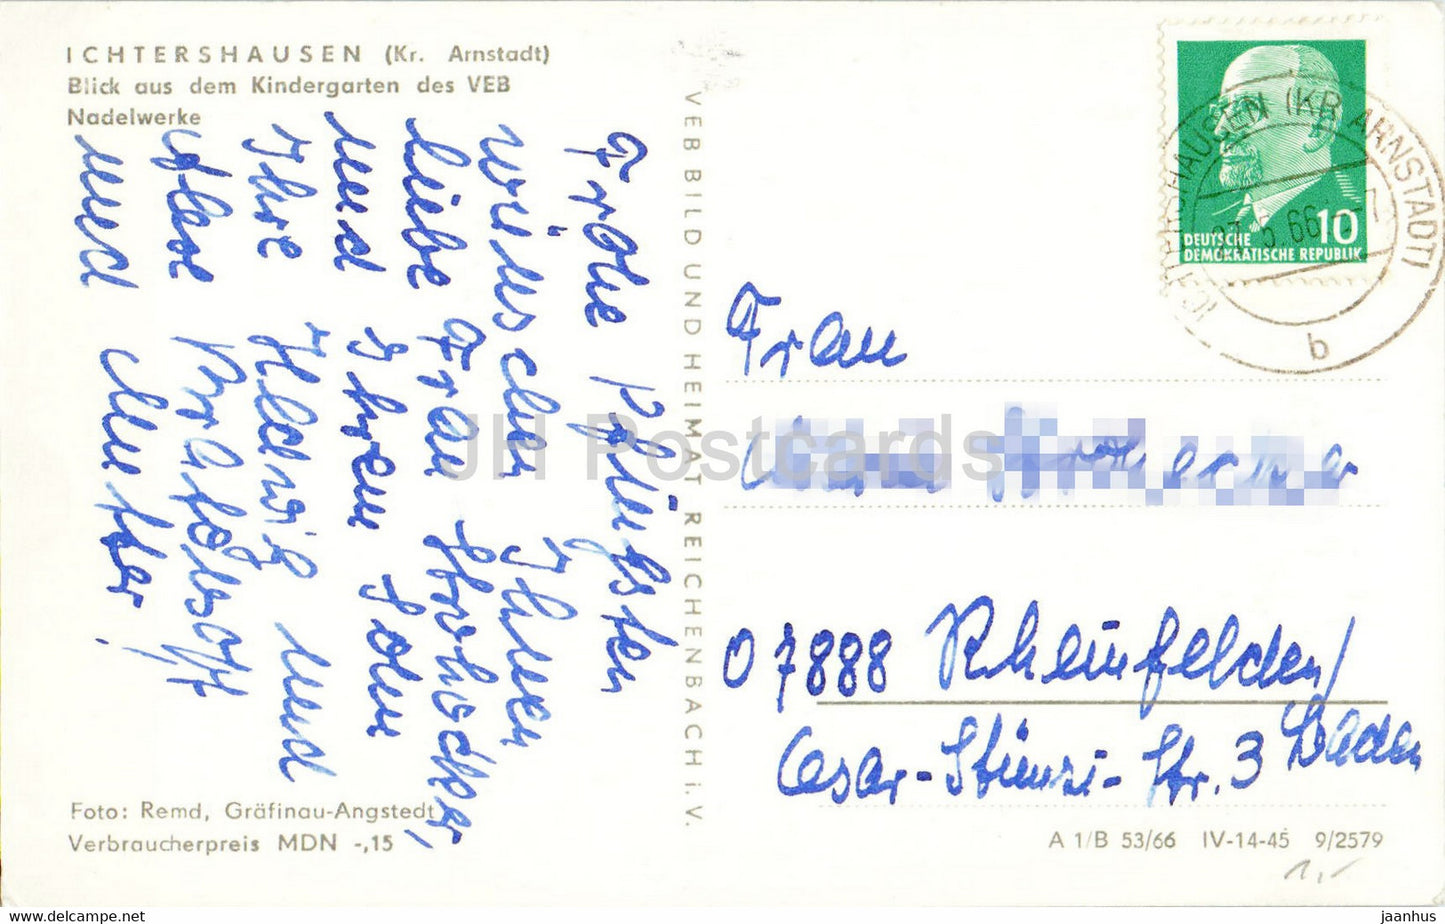 ICHTERSHAUSEN (Kr. Arnstadt)
Blick aus dem Kindergarten des VEB
Nadelwerke
Frohe Pfingsten
wünschen Ihnen
liebe Frau
und Ihrem Sohn
Ihre Hedwig und
und Mutter!
Foto: Remd, Gräfinau-Angstedt
Verbraucherpreis MDN -,15
VEB BILD UND HEIMAT REICHENBACH i. V.
DEUTSCHE
DEMOKRATISCHE REPUBLIK
10
ICHTERSHAUSEN (KR ARNSTADT)
5.66
b
Frau
07888 Rheinfelden/
Baden
Cesar-Stünzi-Str. 3
A 1/B 53/66 IV-14-45 9/2579
1,-
JH Postcards
www.delcampe.net
jaanhus